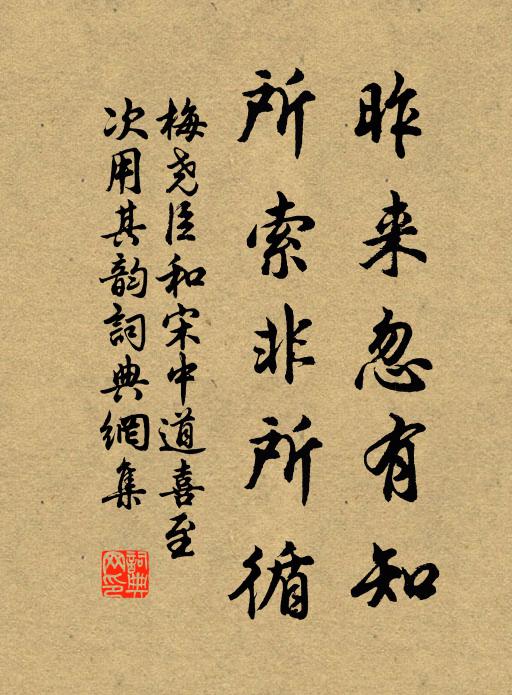 昨来忽有知
所索非所循
梅尧臣和宋中道喜至
次用其韵詞典網集
詞典網印